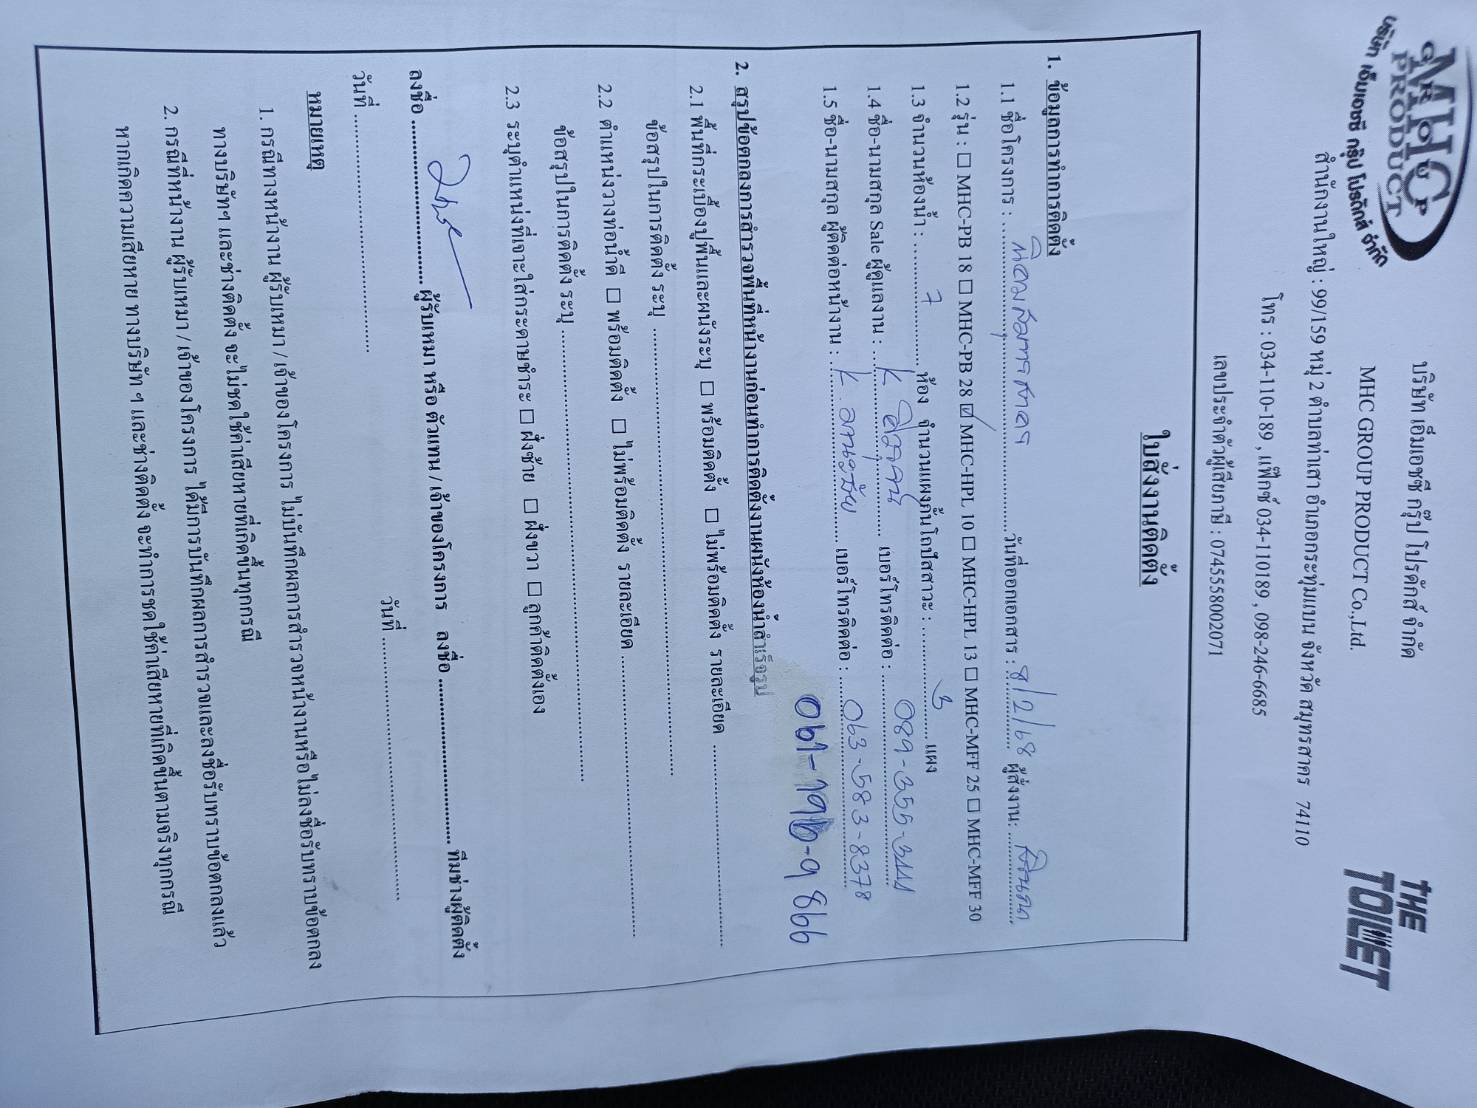 MHC
GROUP
PRODUCT
บริษัท เอ็มเอชซี กรุ๊ป โปรดักส์ จำกัด
บริษัท เอ็มเอชซี กรุ๊ป โปรดักส์ จำกัด
MHC GROUP PRODUCT Co.,Ltd.
THE TOILET
สำนักงานใหญ่ : 99/159 หมู่ 2 ตำบลท่าเสา อำเภอกระทุ่มแบน จังหวัด สมุทรสาคร 74110
โทร : 034-110-189 , แฟ็กซ์ 034-110189 , 098-246-6685
เลขประจำตัวผู้เสียภาษี : 0745558002071
ใบสั่งงานติดตั้ง
1. ข้อมูลการทำการติดตั้ง
1.1 ชื่อโครงการ : วันที่ออกเอกสาร : 8/2/68 ผู้สั่งงาน:
1.2 รุ่น : ☐ MHC-PB 18 ☐ MHC-PB 28 ☑ MHC-HPL 10 ☐ MHC-HPL 13 ☐ MHC-MFF 25 ☐ MHC-MFF 30
1.3 จำนวนห้องน้ำ : 7 ห้อง จำนวนแผงกั้นโถปัสสาวะ : 3 แผง
1.4 ชื่อ-นามสกุล Sale ผู้ดูแลงาน : K เบอร์โทรติดต่อ : 089-355-3441
1.5 ชื่อ-นามสกุล ผู้ติดต่อหน้างาน : K เบอร์โทรติดต่อ : 063-583-8378
061-196-9866
2. สรุปข้อตกลงการสำรวจพื้นที่หน้างานก่อนทำการติดตั้งงานผนังห้องน้ำสำเร็จรูป
2.1 พื้นที่กระเบื้องปูพื้นและผนังระบุ ☐ พร้อมติดตั้ง ☐ ไม่พร้อมติดตั้ง รายละเอียด
ข้อสรุปในการติดตั้ง ระบุ
2.2 ตำแหน่งวางท่อน้ำดี ☐ พร้อมติดตั้ง ☐ ไม่พร้อมติดตั้ง รายละเอียด
ข้อสรุปในการติดตั้ง ระบุ
2.3 ระบุตำแหน่งที่เจาะใส่กระดาษชำระ ☐ ฝั่งซ้าย ☐ ฝั่งขวา ☐ ลูกค้าติดตั้งเอง
ลงชื่อ ผู้รับเหมา หรือ ตัวแทน / เจ้าของโครงการ ลงชื่อ ทีมช่างผู้ติดตั้ง
วันที่ วันที่
หมายเหตุ
1. กรณีทางหน้างาน ผู้รับเหมา / เจ้าของโครงการ ไม่บันทึกผลการสำรวจหน้างานหรือไม่ลงชื่อรับทราบข้อตกลง
ทางบริษัทฯ และช่างติดตั้ง จะไม่ชดใช้ค่าเสียหายที่เกิดขึ้นทุกกรณี
2. กรณีที่หน้างาน ผู้รับเหมา / เจ้าของโครงการ ได้มีการบันทึกผลการสำรวจและลงชื่อรับทราบข้อตกลงแล้ว
หากเกิดความเสียหาย ทางบริษัท ฯ และช่างติดตั้ง จะทำการชดใช้ค่าเสียหายที่เกิดขึ้นตามจริงทุกกรณี